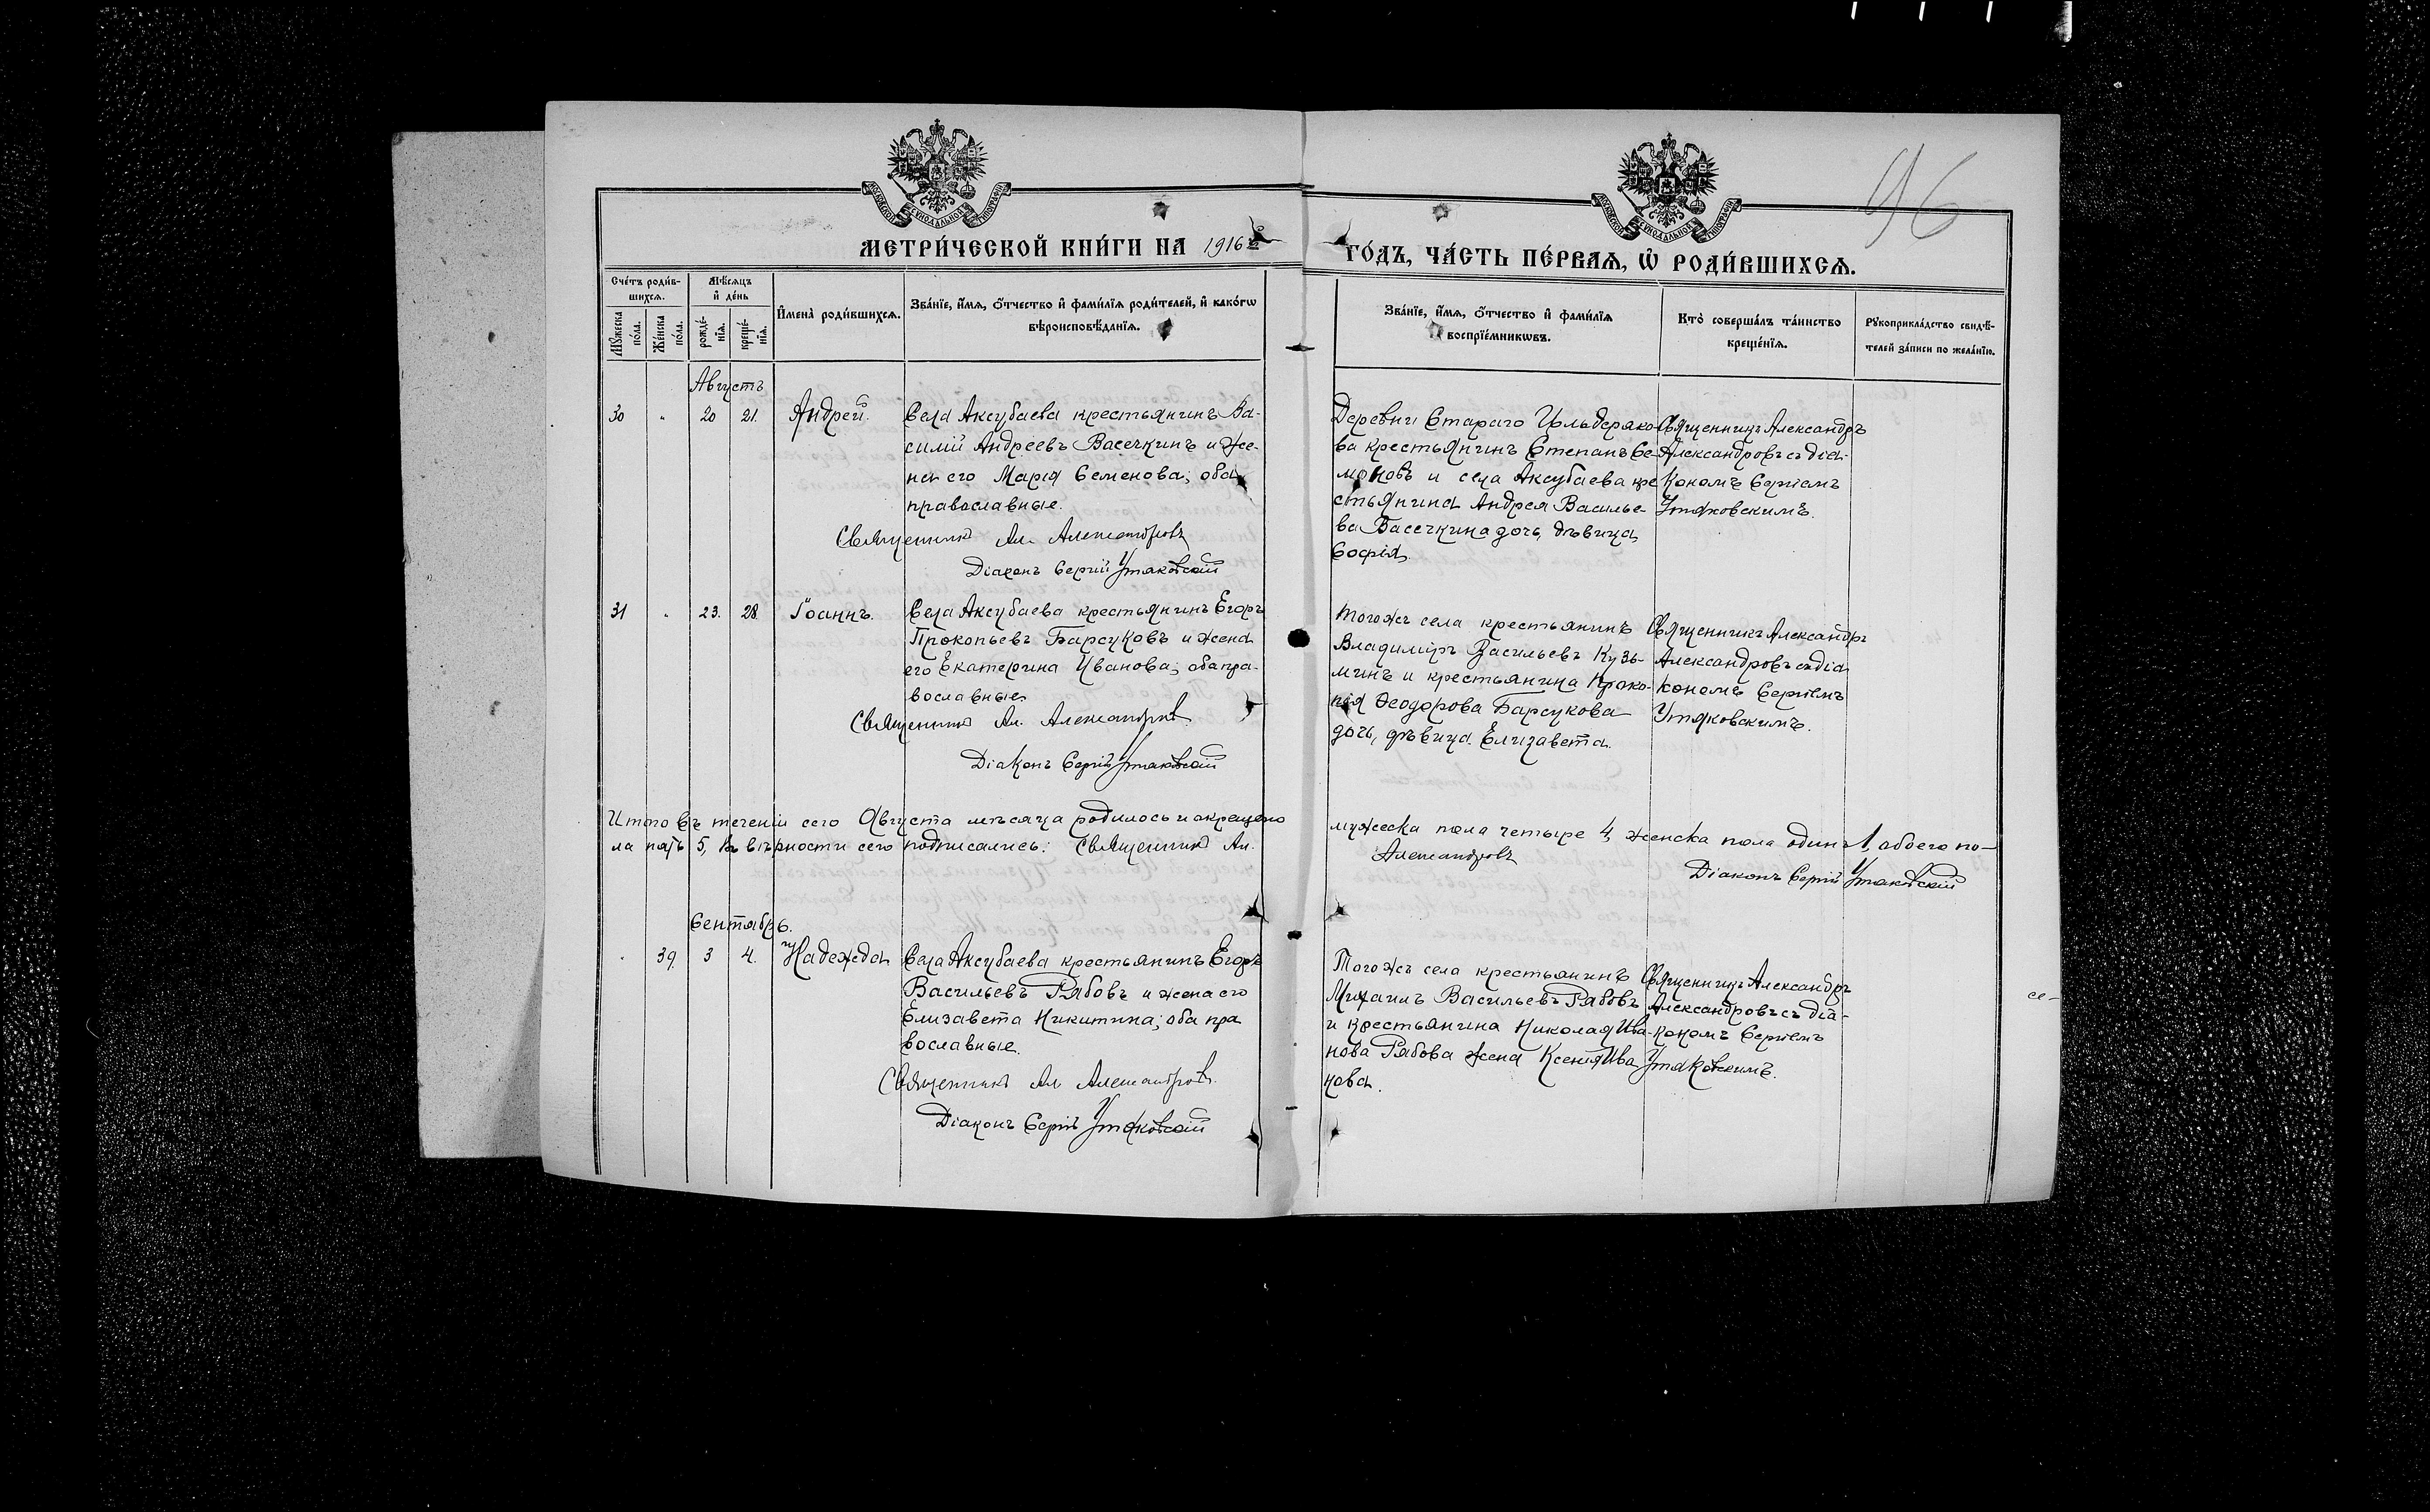 96
МЕТРИ́ЧЕСКОЙ КНИ́ГИ НА 1916 й
ГО́ДЪ, ЧА́СТЬ ПЕ́РВАѦ, Ѡ҆ РОДИ́ВШИХСѦ.
Сче́тъ роди́в-
шихсѧ.
Мꙋ́жеска по́ла.
Же́нска по́ла.
Мѣ́сѧцъ
и҆ де́нь
рожде́-
нїѧ.
креще́-
нїѧ.
И҆мена̀ роди́вшихсѧ.
Зва́нїе, и҆́мѧ, ѻ҆́тчество и҆ фами́лїѧ роди́телей, и҆ како́гѡ
вѣроисповѣ́данїѧ.
Зва́нїе, и҆́мѧ, ѻ҆́тчество и҆ фами́лїѧ
воспрїе́мникѡвъ.
Кто̀ соверша́лъ та́инство
креще́нїѧ.
Рꙋкоприкла́дство свидѣ́-
телей за́писи по жела́нїю.
Августъ
30 " 20 21. Андрей.
Села Аксубаева крестьянинъ Ва-
силій Андреевъ Васечкинъ и же-
на его Марія Семенова; оба
православные.
Священникъ Ал. Александровъ
Діаконъ Сергій Утяковскій
Деревни Стараго Ильдеряко-
ва крестьянинъ Степанъ Се-
моновъ и села Аксубаева кре
стьянина Андрея Василье-
ва Васечкина дочь, дѣвица
Софія.
Священникъ Александръ
Александровъ съ діа-
кономъ Сергіемъ
Утяковскимъ.
31 " 23. 28. Іоаннъ.
Села Аксубаева крестьянинъ Егоръ
Прокопьевъ Барсуковъ и жена
его Екатерина Иванова; оба пра-
вославные
Священникъ Ал. Александровъ
Діаконъ Сергій Утяковскій
Тогожъ села крестьянинъ
Владиміръ Васильевъ Кузь-
минъ и крестьянина Проко-
пія Ѳеодорова Барсукова
дочь, дѣвица Елизавета.
Священникъ Александръ
Александровъ съ діа
кономъ Сергіемъ
Утяковскимъ.
Итого въ теченіи сего Августа мѣсяца родилось и окрещено
мужеска пола четыре 4, женска пола одинъ 1, обоего по-
ла пять 5, въ вѣрности сего подписались: Священникъ Ал.
Александровъ
Діаконъ Сергій Утяковскій
Сентябрь.
" 39. 3 4. Надежда
Села Аксубаева крестьянинъ Егоръ
Васильевъ Рябовъ и жена его
Елизавета Никитина; оба пра
вославные.
Священникъ Ал. Александровъ.
Діаконъ Сергій Утяковскій
Тогожъ села крестьянинъ
Михаилъ Васильевъ Рябовъ
и крестьянина Николая Ива-
нова Рябова жена Ксенія Ива
нова.
Священникъ Александръ
Александровъ съ діа-
кономъ Сергіемъ
Утяковскимъ.
се-